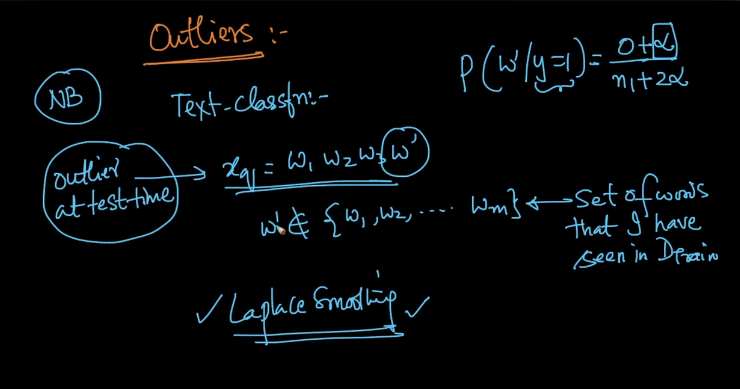 Outliers :-
P(w'/y=1) = 0+α / n₁+2α
NB
Text-classfn:-
outlier
at test-time
x_q = w₁ w₂ w₃ w'
w' ∉ {w₁, w₂, .... w_m}
Set of words
that I have
seen in D_Train
✓ Laplace Smoothing ✓